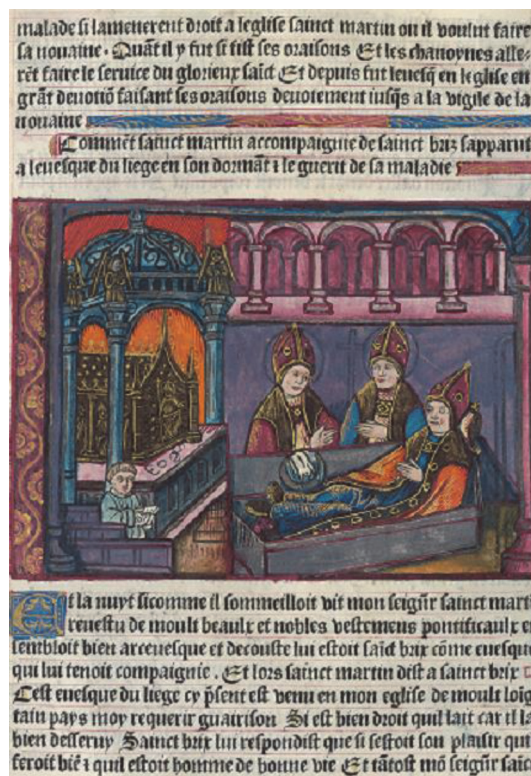 malade si lamenerent droit a leglise sainct martin ou il voulut faire
sa nouaine. Quāt il y fut si fist ses oraisons Et les chanoynes alle-
rēt faire le seruice du glorieux saīct Et depuis fut leuesq̄ en leglise en
grāt deuotiō faisant ses oraisons deuotement iusq̄s a la vigile de la
nouaine
Commēt sainct martin accompaignie de sainct brix sapparut
a leuesque du liege en son dormāt ⁊ le guerit de sa maladie
Et la nuyt sicomme il sommeilloit vit mon seigñr sainct mart
reuestu de moult beaulx et nobles vestemens pontificaulx e
sembloit bien arceuesque et decouste lui estoit saīct brix cōme euesque
qui lui tenoit compaignie. Et lors sainct martin dist a sainct brix
Cest euesque du liege cy p̄sent est venu en mon eglise de moult loig
tain pays moy requerir guairison Si est bien droit quil lait car il la
bien desseruy Sainct brix lui respondist que si sestoit son plaisir qui
feroit biē ⁊ quil estoit homme de bonne vie Et tātost mō seigñr sain